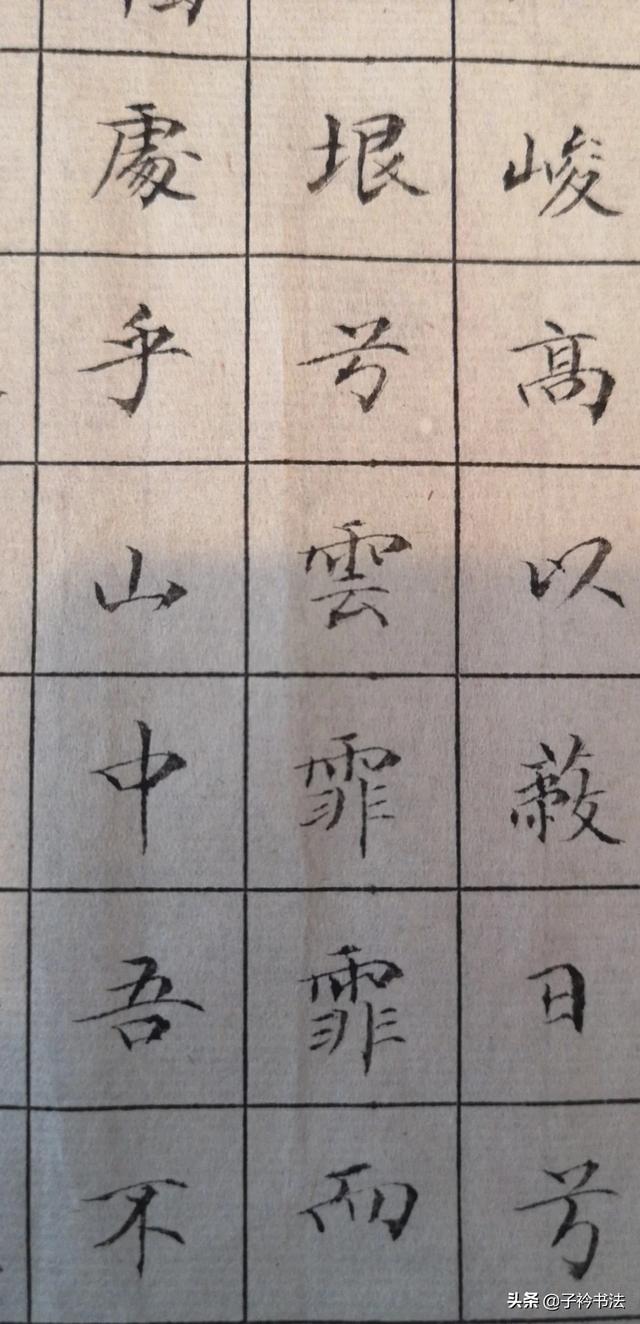 峻高以蔽日兮
垠兮雲霏霏而
處乎山中吾不
头条 @子衿书法